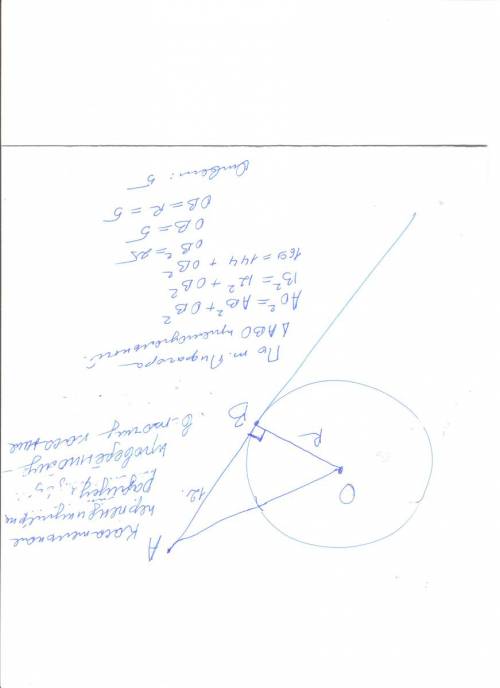 Касательная
перпендикулярна
радиусу,
проведённому
в точку касание.
A
12.
B
R
O
По т. Пифагора
△ABO прямоугольный.
AO² = AB² + OB²
13² = 12² + OB²
169 = 144 + OB²
OB² = 25
OB = 5
OB = R = 5
Ответ: 5